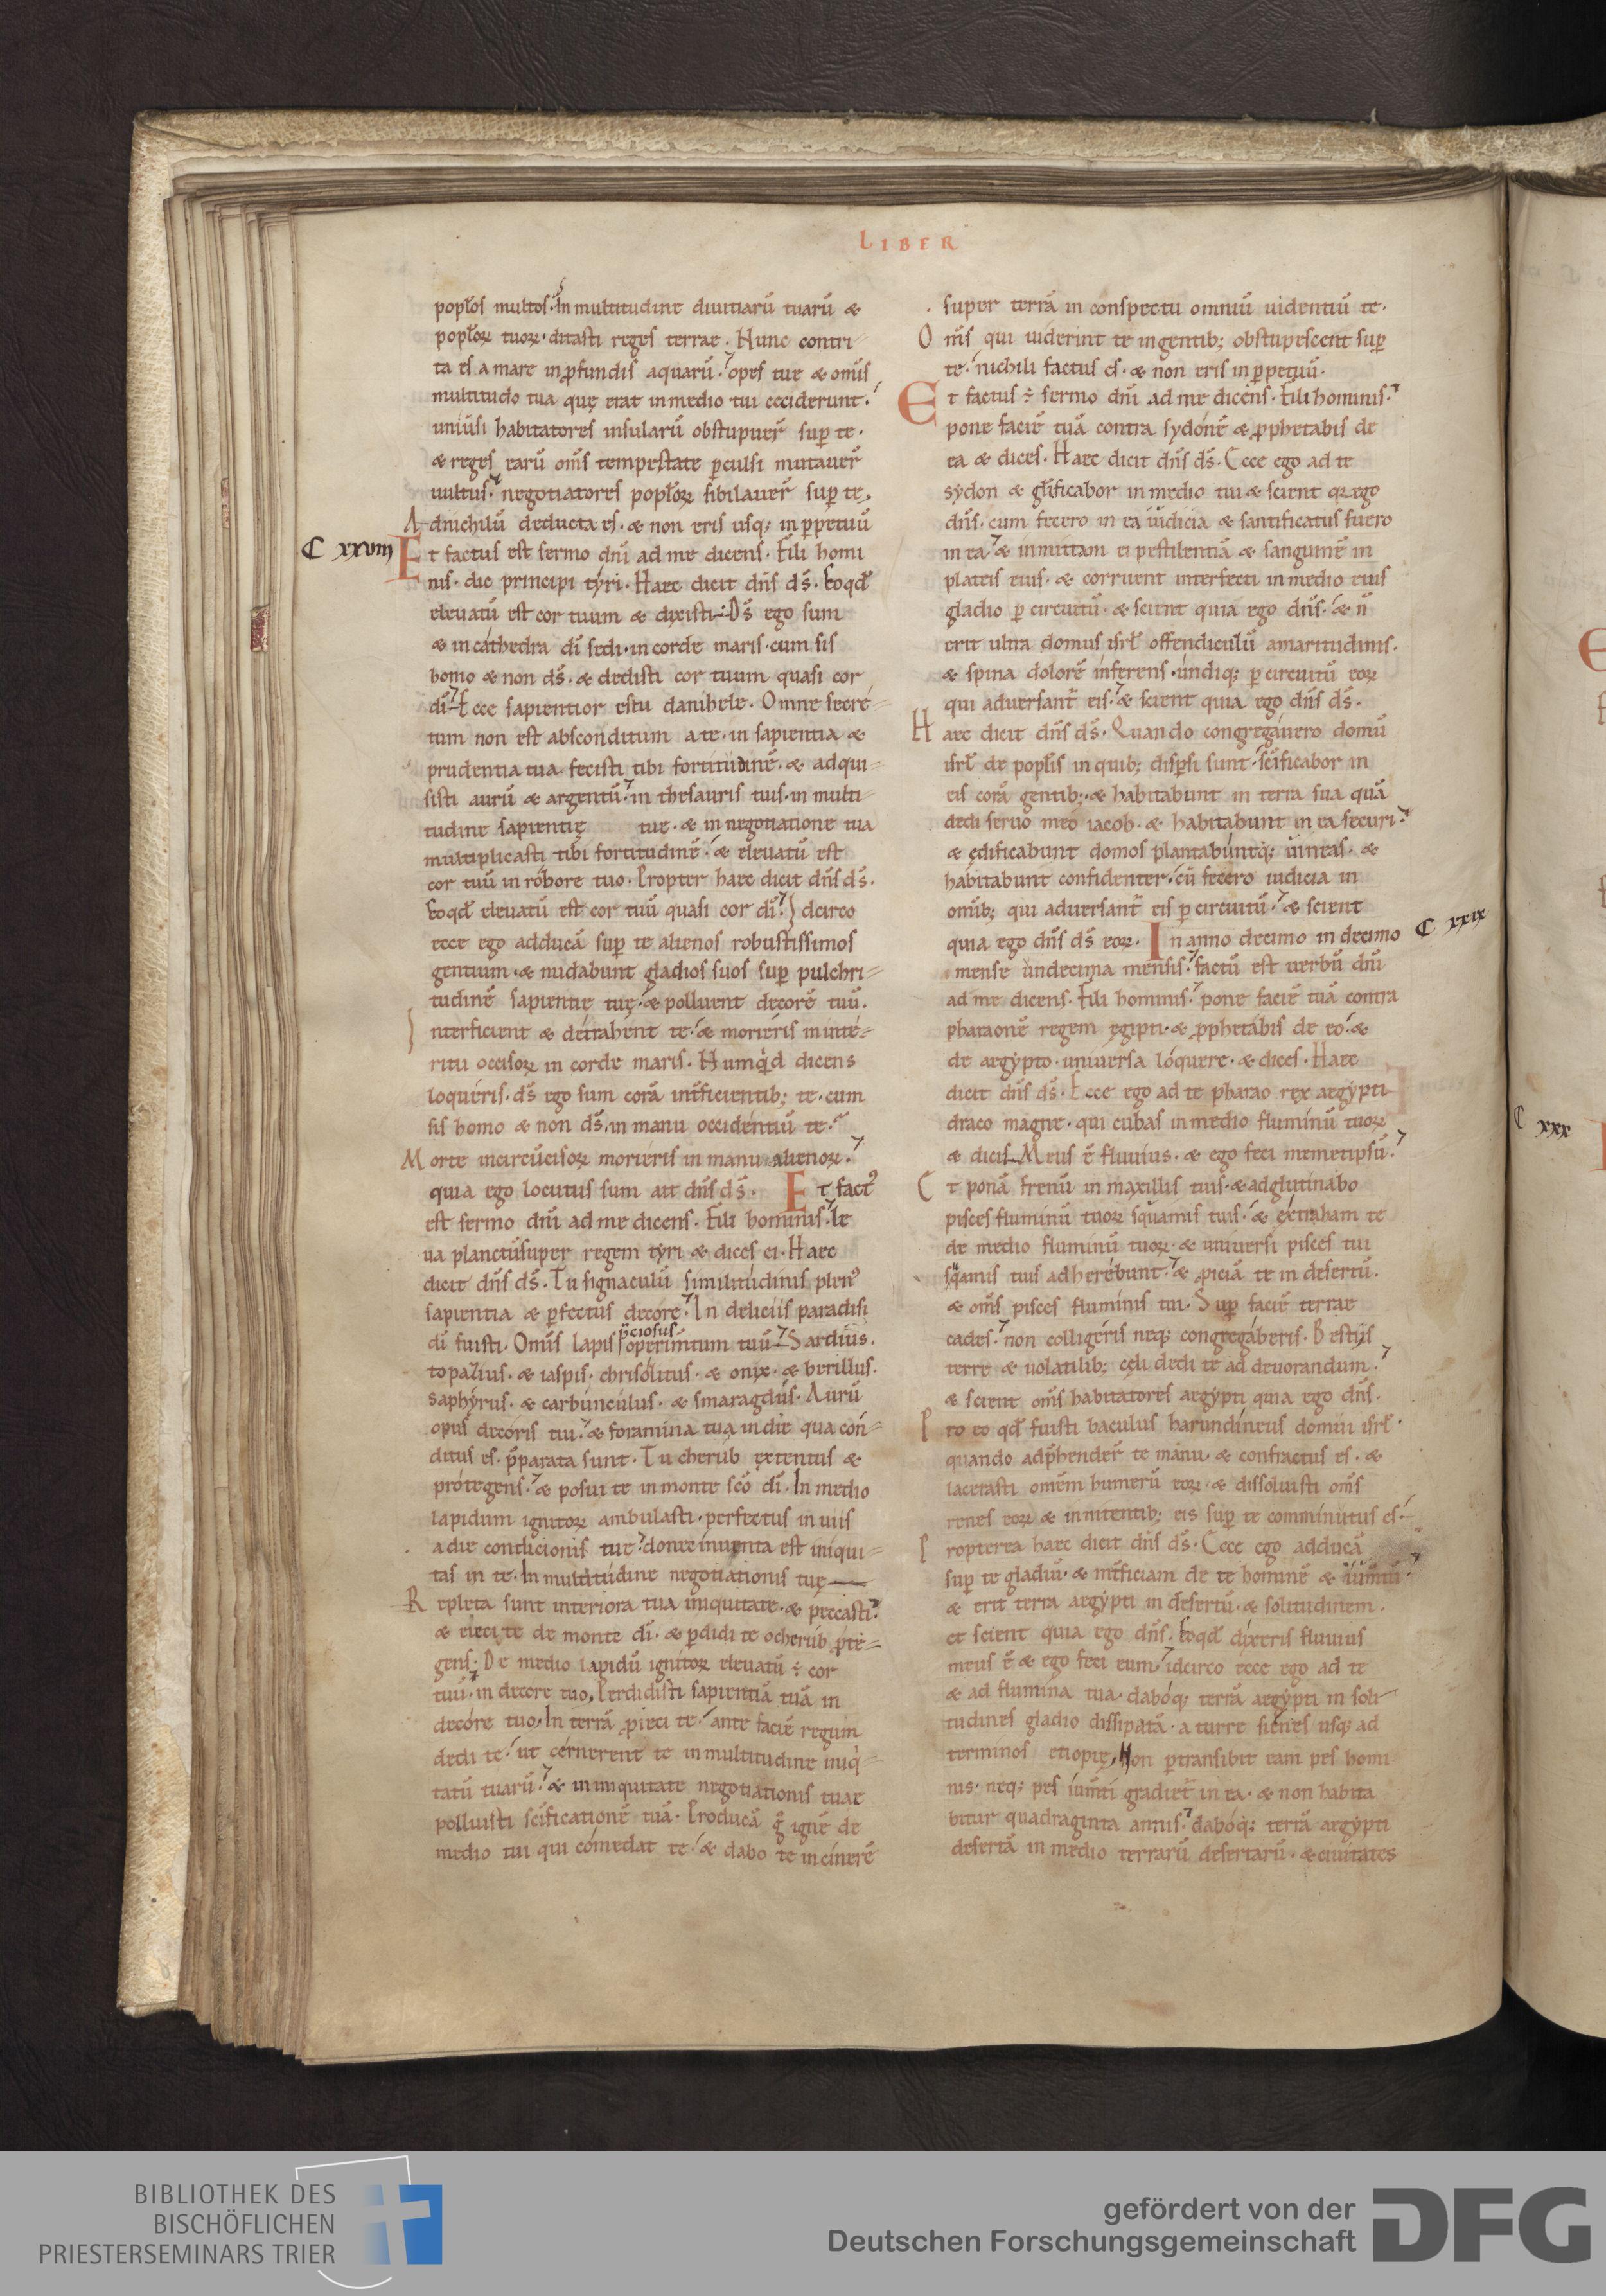 LIBER
popl̃os multos. In multitudine diuitiarū tuarū &
popl̃oꝝ tuoꝝ. ditasti reges terrae. Nunc contri
ta es a mare in ꝓfundis aquarū. opes tue & om̄is
multitudo tua quę erat in medio tui ceciderunt.
uniúsi habitatores insularū obstupuer̄ sup̄ te.
& reges earū om̄s tempestate ꝑculsi mutauer̄
uultus. negotiatores popl̃oꝝ sibilauer̄ sup̄ te.
Adnichilū deducta es. & non eris usq; in ꝑpetuū
C xxviii Et factus est sermo dn̄i ad me dicens. Fili homi
nis. dic principi tyri. Haec dicit dn̄s ds̄. Eoqd̄
eleuatū est cor tuum & dixisti. Ds̄ ego sum
& in cáthedra dī sedi. in corde maris. cum sis
homo & non ds̄. & dedisti cor tuum quasi cor
dī. Ecce sapientior es tu danihele. Omne secré
tum non est absconditum a te. in sapientia &
prudentia tua fecisti tibi fortitudinē. & adqui
sisti aurū & argentū. in thesauris tuis. in multi
tudine sapientię tue. & in negotiatione tua
multiplicasti tibi fortitudinē. & eleuatū est
cor tuū in róbore tuo. Propter haec dicit dn̄s ds̄.
Eoqd̄ eleuatū est cor tuū quasi cor dī. Idcirco
ecce ego adducā sup̄ te alienos robustissimos
gentium. & nudabunt gladios suos sup̄ pulchri
tudinē sapientię tuę. & polluent decorē tuū.
Interficient & détrahent te. & moriéris in inté
ritu occisoꝝ in corde maris. Numqͥd dicens
loquéris. ds̄ ego sum corā int̄ficientib; te. cum
sis homo & non ds̄. in manu occidentiū te.
Morte incircūcisoꝝ moriéris in manu alienoꝝ.
quia ego locutus sum ait dn̄s ds̄. Et factꝰ
est sermo dn̄i ad me dicens. Fili hominis. le
ua planctū super regem tyri & dices ei. Haec
dicit dn̄s ds̄. Tu signaculū similitúdinis plenꝰ
sapientia & ꝑfectus decore. In deliciis paradisi
dī fuisti. Omīs lapis p̄ciosus operimtum tuū. Sardius.
topazius. & iaspis. chrisólitus. & onix. & berillus.
saphýrus. & carbúnculus. & smaragdús. Aurū
opus decóris tui. & foramina tua in die qua cón
ditus es. p̄parata sunt. Tu cherúb extentus &
prótegens. & posui te in monte sc̄o dī. In medio
lapidum ignitoꝝ ambulasti. perfectus in uiis
a die condicionis tue. donec inuenta est iniqui
tas in te. In multitúdine negotiationis tuę
Repleta sunt interiora tua iniquitate. & peccasti.
& eieci te de monte dī. & ꝑdidi te o cherúb ꝓté
gens. De medio lapidū ignitoꝝ eleuatū ÷ cor
tuū. in decore tuo. Perdidisti sapientiā tuā in
decóre tuo. In terrā ꝓieci te. ante faciē regum
dedi te. ut cérnerent te in multitudine iniqͥ
tatū tuarū. & in iniquitate negotiationis tuae
polluisti sc̄ificationē tuā. Producā g̊ ignē de
medio tui qui cómedat te. & dabo te in cínerē
super terrā in conspectu omniū uidentiū te.
Om̄s qui uiderint te in gentib; obstupescent sup̄
te. nichili factus es. & non eris in ꝑpetuū.
Et factus ÷ sermo dn̄i ad me dicens. Fili hominis.
pone faciē tuā contra sydónē & ꝓphetabis de
ea & dices. Haec dicit dn̄s ds̄. Ecce ego ad te
sydon & gl̄ificabor in medio tui & scient qꝛ ego
dn̄s. cum fecero in ea iúdicia & santificatus fuero
in ea. & inmittam ei pestilentiā & sanguinē in
plateis eius. & corruent interfecti in medio eius
gladio ꝑ circuitū. & scient quia ego dn̄s. & n̄
erit ultra domus isrl̄ offendiculū amaritudinis.
& spina dolorē inferens. úndiq; ꝑ circuitū eoꝝ
qui aduersant̄ eis. & scient quia ego dn̄s ds̄.
Haec dicit dn̄s ds̄. Quando congregáuero domū
isrl̄ de popl̃is in quib; disꝑsi sunt. sc̄ificabor in
eis corā gentib;. & habitabunt in terra sua quā
dedi seruo meo iacob. & habitabunt in ea securi.
& ędificabunt domos plantabúntq; uineas. &
hábitabunt confidenter. cū fecero iudicia in
omīb; qui aduersant̄ eis ꝑ circuitū. & scient
quia ego dn̄s ds̄ eoꝝ. In anno decimo in decimo C xxix
mense úndecima mensis. factū est uerbū dn̄i
ad me dicens. Fili hominis. pone faciē tuā contra
pharaonē regem egipti. & ꝓphetábis de eo. &
de aegýpto. uniuersa lóquere. & dices. Haec
dicit dn̄s ds̄. Ecce ego ad te pharao rex aegýpti
draco magne. qui cubas in medio flumínū tuoꝝ
& dicis. Meus ē fluuius. & ego feci memetipsū.
Et ponā frenū in maxillis tuis. & adglutinábo
pisces fluminū tuoꝝ squamis tuis. & éxtraham te
de medio fluminū tuoꝝ. & uniuersi pisces tui
sqͣamis tuis adherébunt. & ꝓiciā te in desertū.
& om̄s pisces fluminis tui. Sup̄ faciē terrae
cades. non colligéris neq; congregáberis. Bestiis
terre & uolatilib; cęli dedi te ad deuorandum.
& scient om̄s habitatores aegýpti quia ego dn̄s.
Pro eo qd̄ fuisti baculus harundíneus domui isrl̄.
quando adp̄hender̄ te manu. & confractus es. &
lacerasti omēm humerū eoꝝ. & dissoluisti om̄s
renes eoꝝ & innitentib; eis sup̄ te commínutus es.
Propterea haec dicit dn̄s ds̄. Ecce ego adducā
sup̄ te gladiū. & int̄ficiam de te hominē & iūmtū.
& erit terra aegýpti in desertū. & solitudinem.
et scient quia ego dn̄s. Eoqd̄ dixeris fluuius
meus ē & ego feci eum. idcirco ecce ego ad te
& ad flumina tua. dabóq; terrā aegýpti in soli
tudines gladio dissipatā. a turre siénes usq; ad
terminos etiopię. Non ꝑtransibit eam pes homi
nis. neq; pes iūmti gradiet̄ in ea. & non habita
bitur quadraginta annis. dabóq; terrā aegýpti
desertā in medio terrarū desertarū. & ciuitates
C xxx
BIBLIOTHEK DES
BISCHÖFLICHEN
PRIESTERSEMINARS TRIER
gefördert von der
Deutschen Forschungsgemeinschaft
DFG